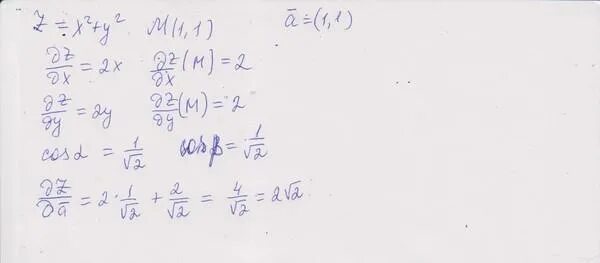 Z = x²+y² M(1,1) ā = (1,1)
∂Z/∂x = 2x ∂Z/∂x (M) = 2
∂Z/∂y = 2y ∂Z/∂y (M) = 2
cos α = 1/√2 cos β = 1/√2
∂Z/∂ā = 2·1/√2 + 2/√2 = 4/√2 = 2√2